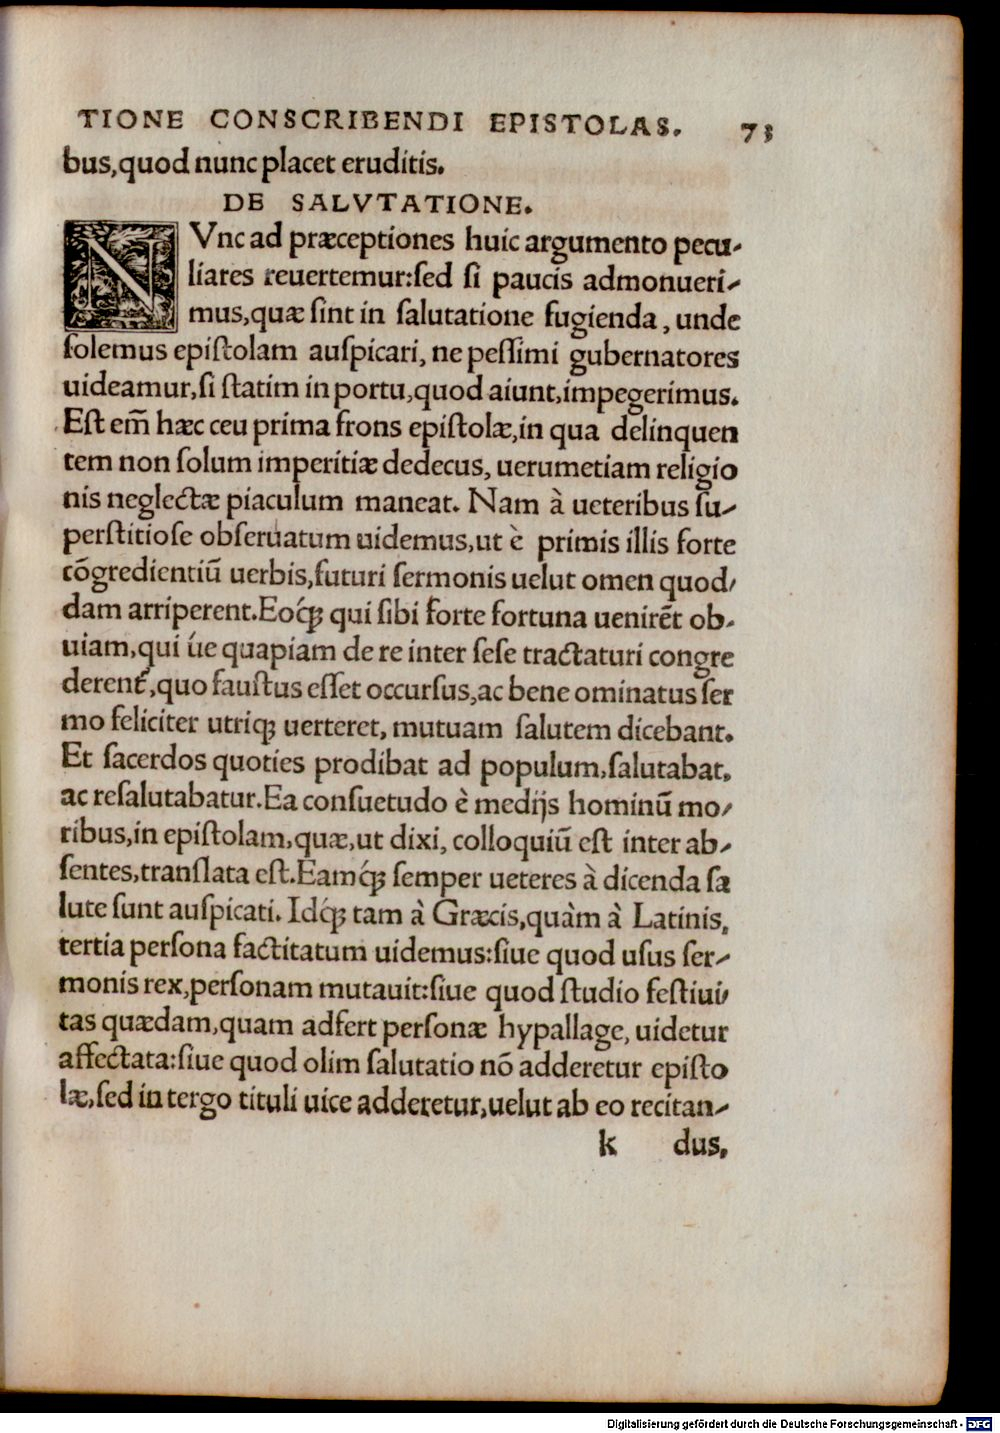 TIONE CONSCRIBENDI EPISTOLAS. 73
bus,quod nunc placet eruditis.
DE SALVTATIONE.
NVnc ad præceptiones huic argumento pecu-
liares reuertemur:sed si paucis admonueri-
mus,quæ sint in salutatione fugienda, unde
ſolemus epiſtolam auſpicari, ne peſſimi gubernatores
uideamur,ſi ſtatim in portu,quod aiunt,impegerimus.
Eſt em̃ hæc ceu prima frons epiſtolæ,in qua delinquen
tem non ſolum imperitiæ dedecus, uerumetiam religio
nis neglectæ piaculum maneat. Nam à ueteribus ſu-
perſtitioſe obſeruatum uidemus,ut è primis illis forte
cõgredientiũ uerbis,futuri ſermonis uelut omen quod-
dam arriperent.Eoq́ꝫ qui ſibi forte fortuna uenirẽt ob-
uiam,qui úe quapiam de re inter ſeſe tractaturi congre
derent̃,quo fauſtus eſſet occurſus,ac bene ominatus ſer
mo feliciter utriqꝫ uerteret, mutuam ſalutem dicebant.
Et ſacerdos quoties prodibat ad populum,ſalutabat,
ac reſalutabatur.Ea conſuetudo è medijs hominũ mo-
ribus,in epiſtolam,quæ,ut dixi, colloquiũ eſt inter ab-
ſentes,tranſlata eſt.Eamq́ꝫ ſemper ueteres à dicenda ſa
lute ſunt auſpicati. Idq́ꝫ tam à Græcis,quàm à Latinis,
tertia perſona factitatum uidemus:ſiue quod uſus ſer-
monis rex,perſonam mutauit:ſiue quod ſtudio feſtiui-
tas quædam,quam adfert perſonæ hypallage, uidetur
affectata:ſiue quod olim ſalutatio nõ adderetur epiſto
læ,ſed in tergo tituli uice adderetur,uelut ab eo recitan-
k dus,
Digitalisierung gefördert durch die Deutsche Forschungsgemeinschaft - DFG